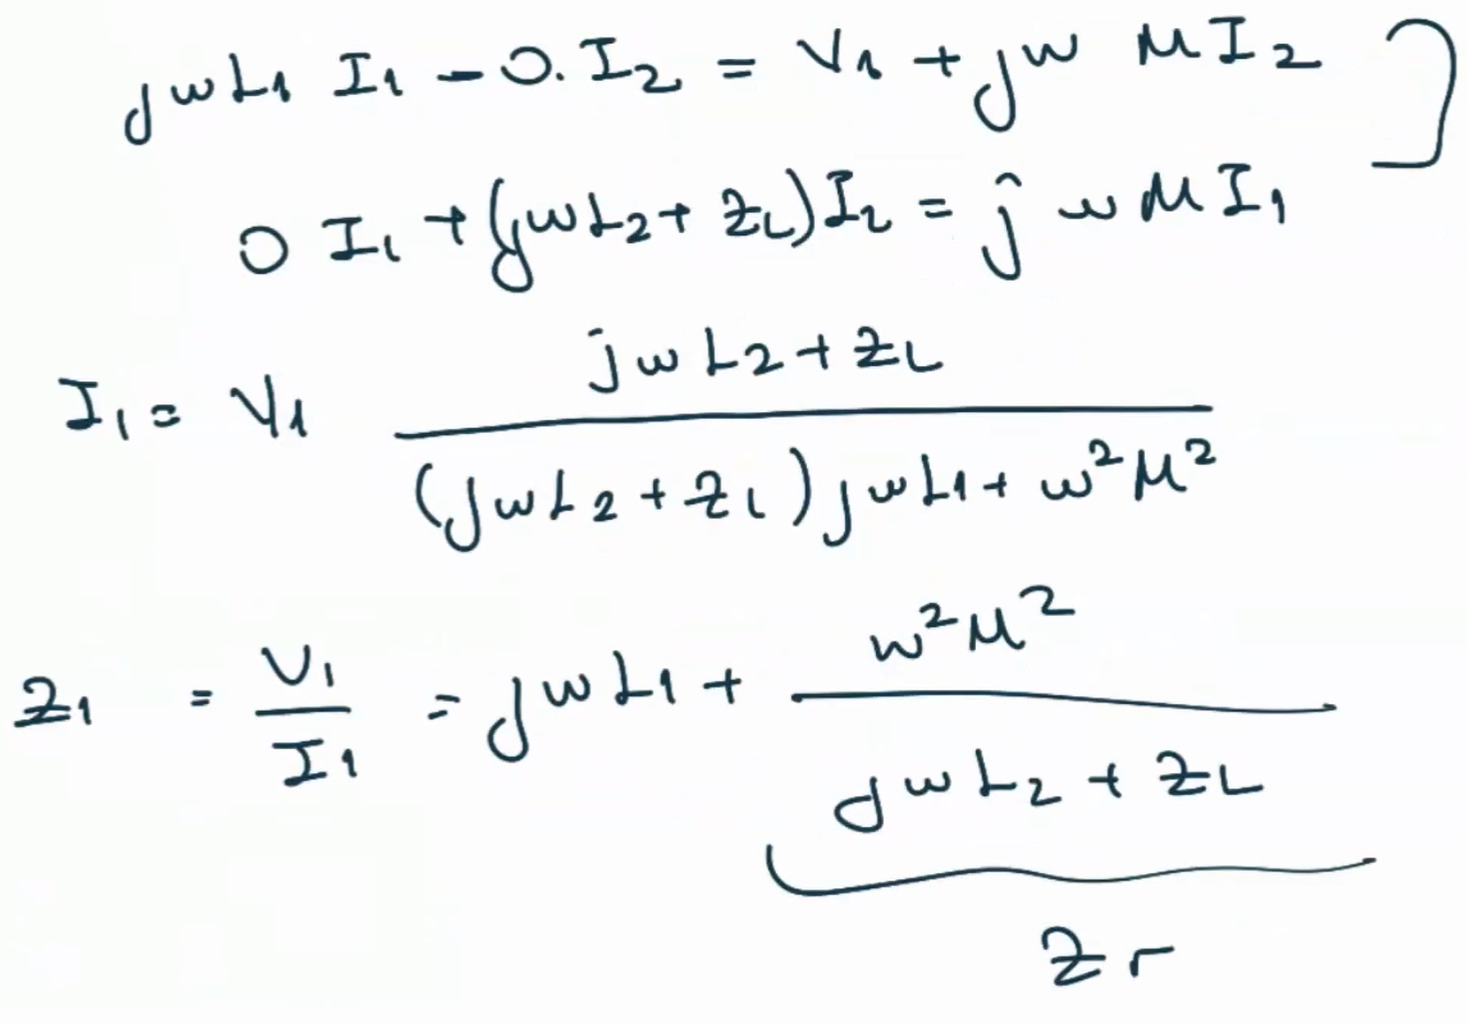 jωL₁ I₁ - 0. I₂ = V₁ + jω M I₂
0 I₁ + (jωL₂ + Z_L) I₂ = j ω M I₁
I₁ = V₁ (jωL₂ + Z_L) / ((jωL₂ + Z_L) jωL₁ + ω²M²)
Z₁ = V₁ / I₁ = jωL₁ + ω²M² / (jωL₂ + Z_L)
Z_r